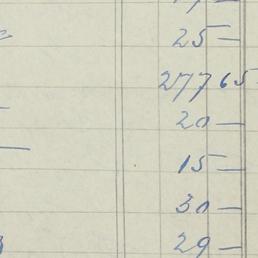 25 —
277 65
20 —
15 —
30 —
29 —